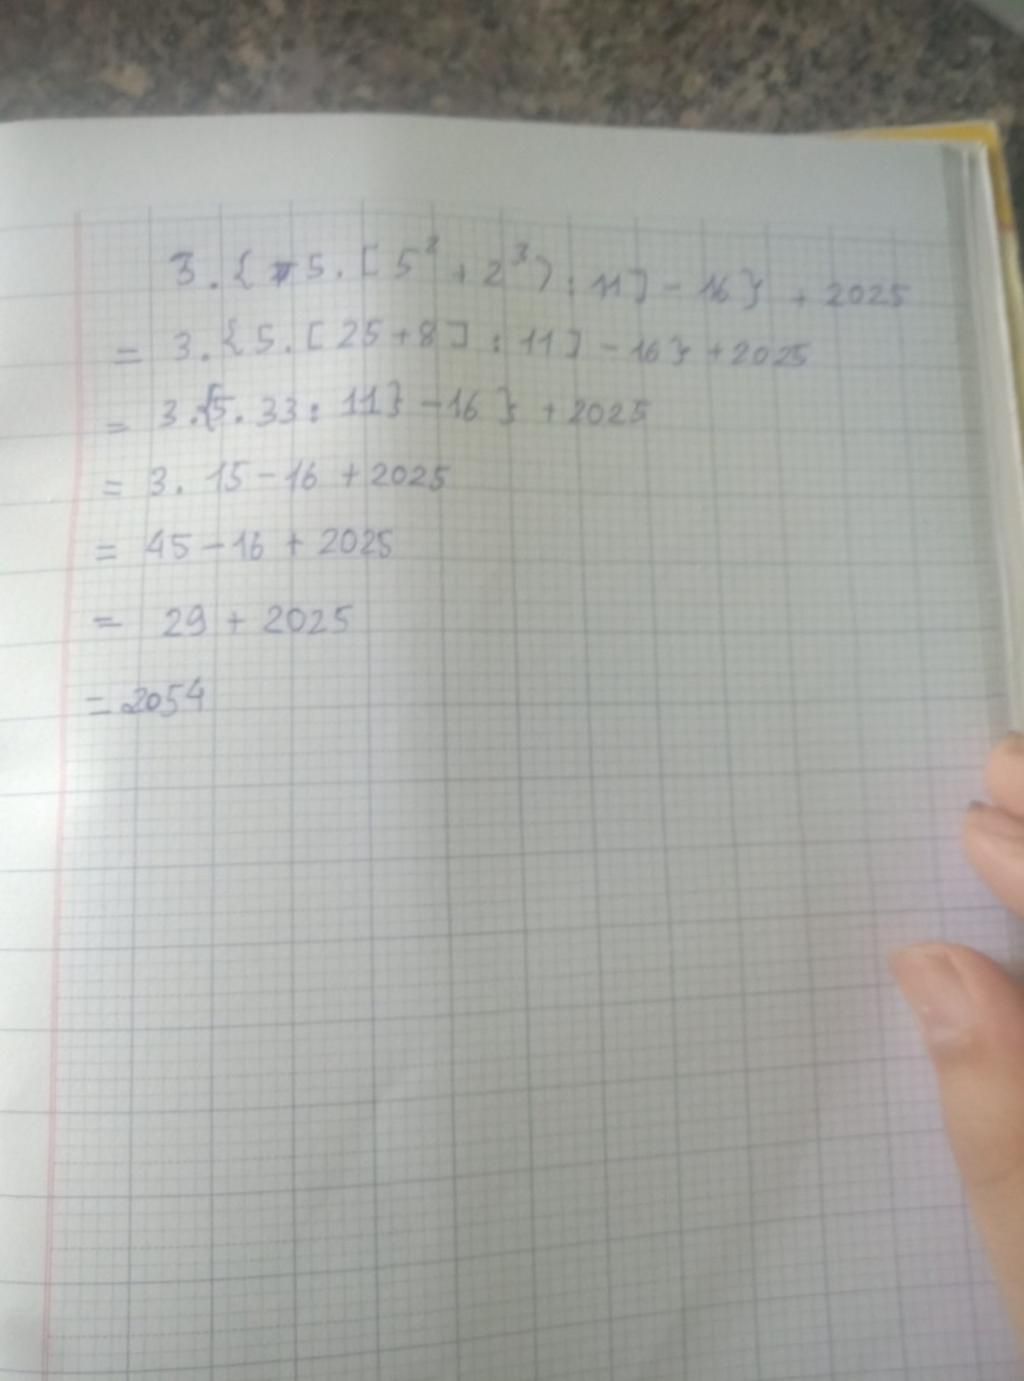 3.{5.[5²+2³):11]-16}+2025
=3.{5.[25+8]:11]-16}+2025
=3.{5.33:11}-16}+2025
=3.15-16+2025
=45-16+2025
=29+2025
=2054